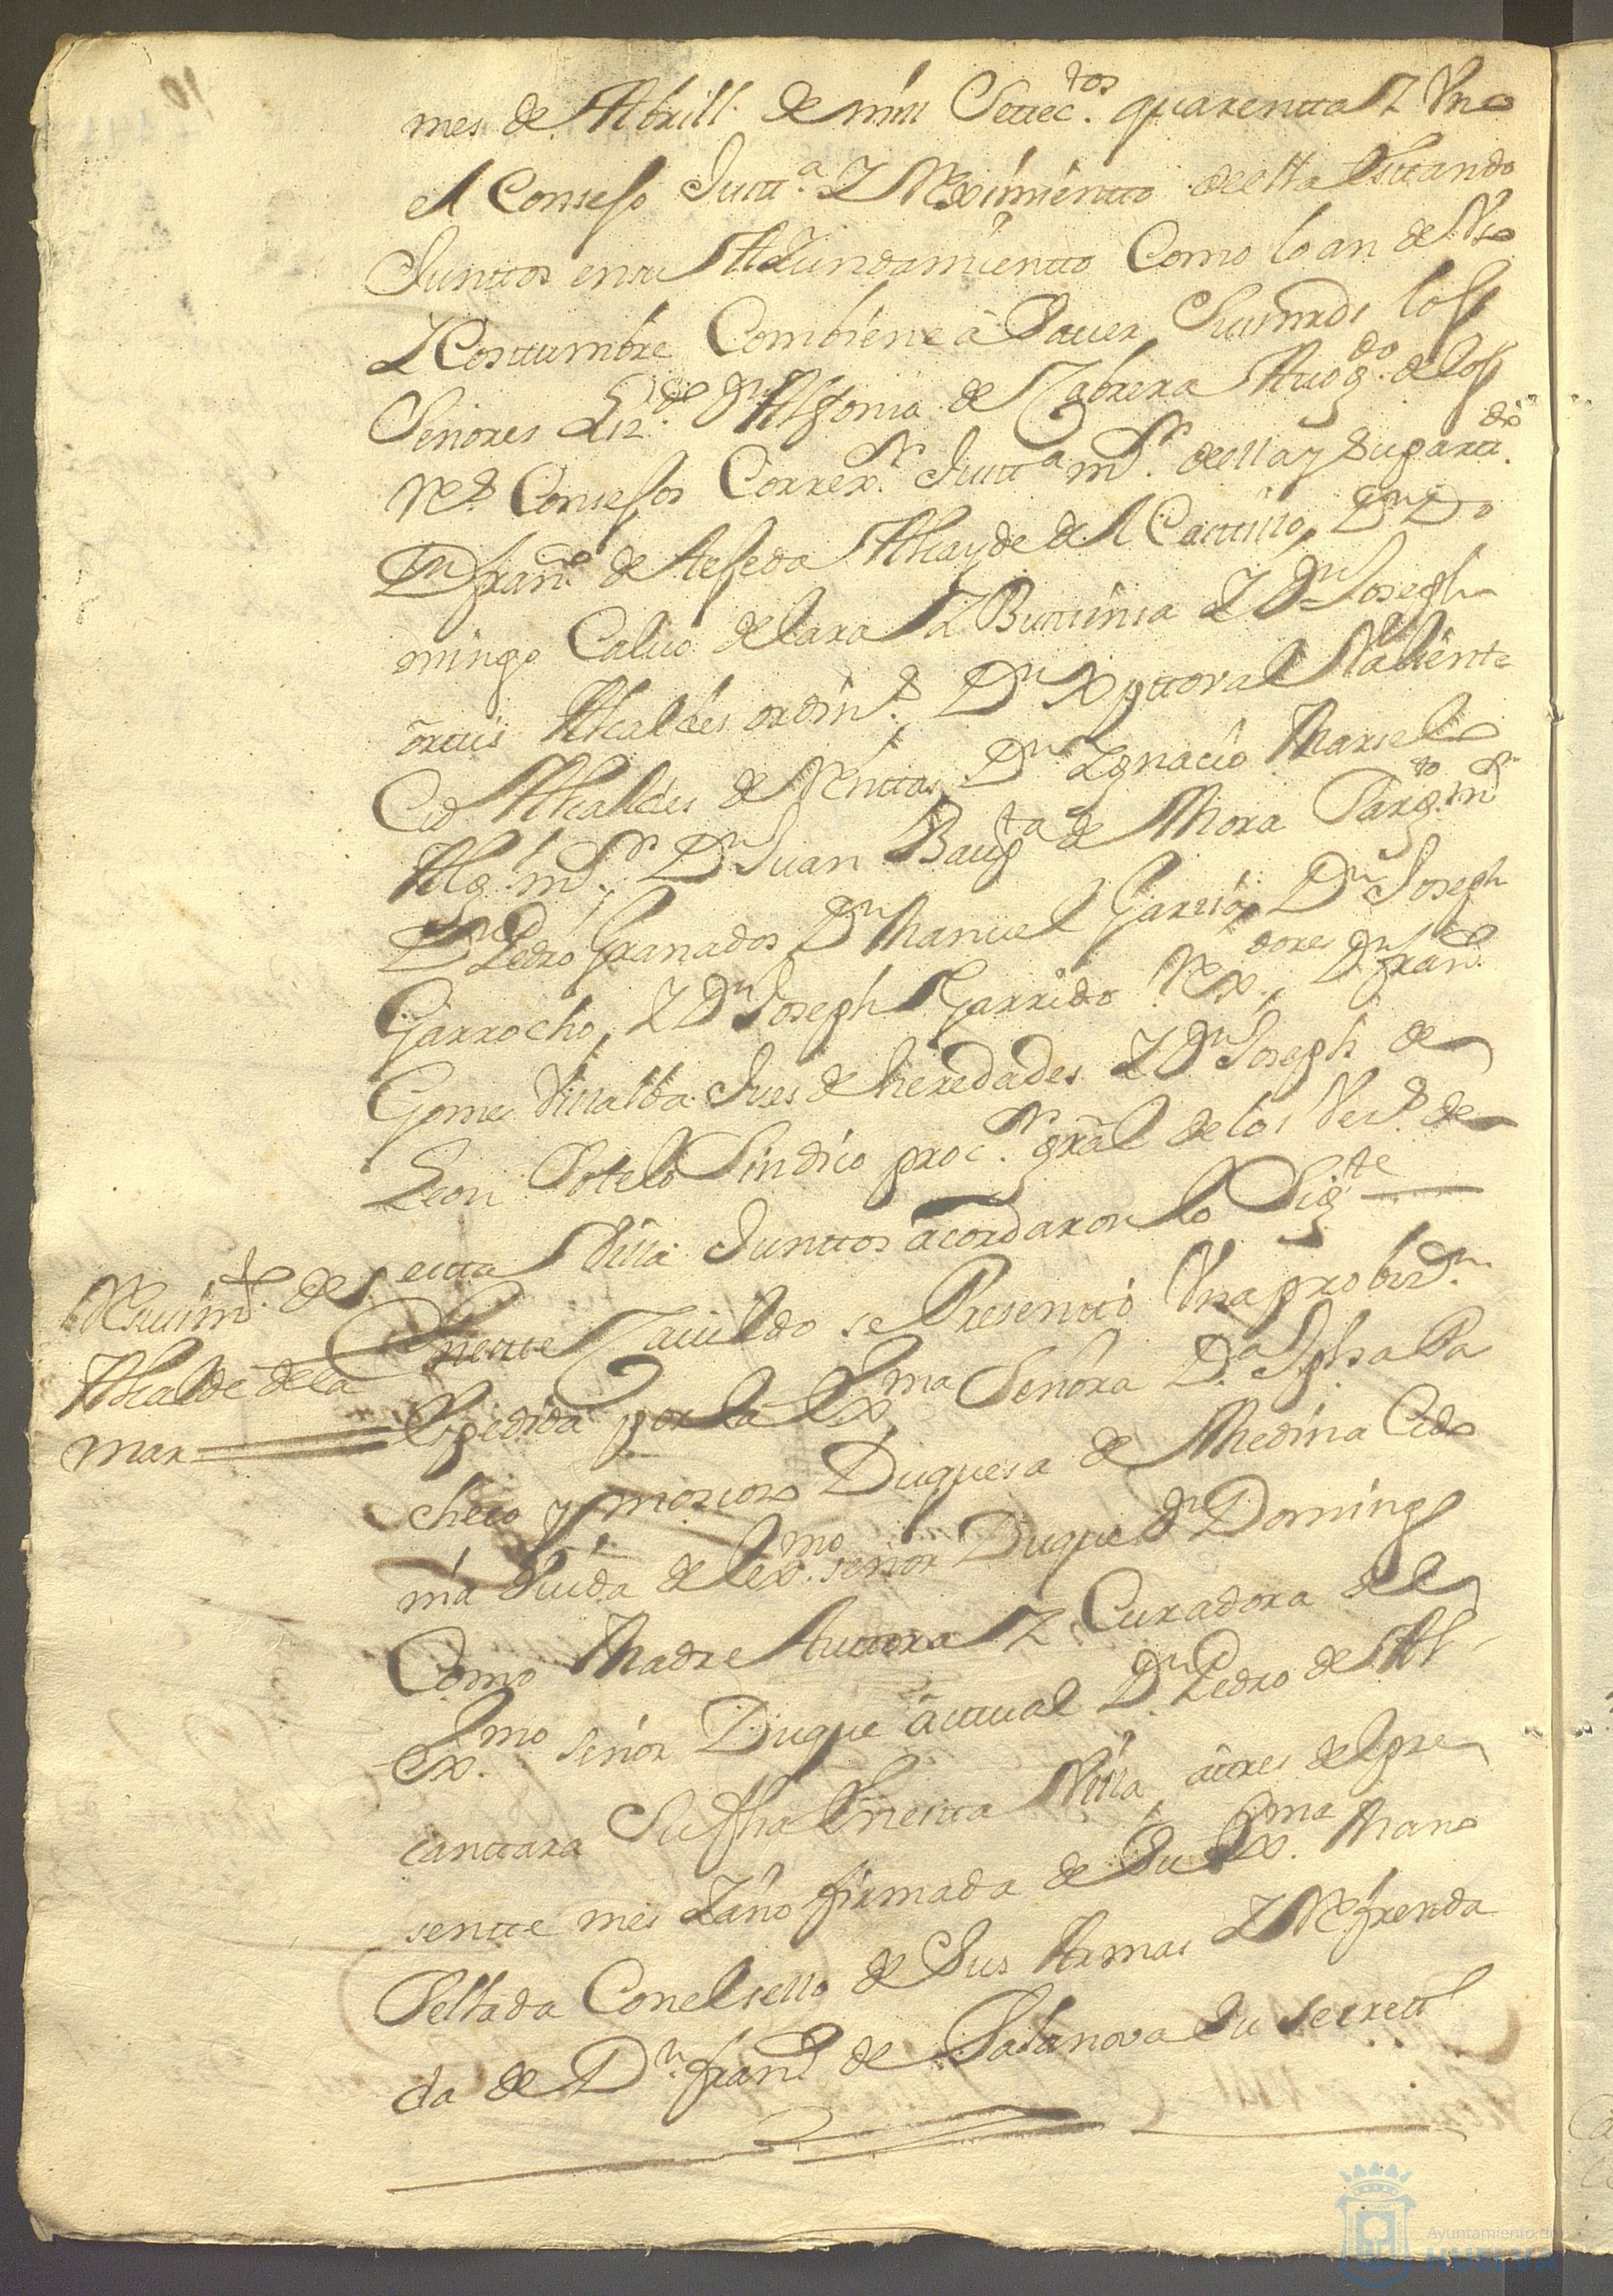 mes de Abrill de mill Settec.tos quarentta Y Uno
el Consejo Justt.a Y Reximientto della Esttando
Junttos en su Aiundamientto Como lo an de Uso
Y Costtumbre Combiene â Sauer Sus mrds los
Señores Liz.do Dn Alfonso de Cabrera Auog.do de los
Rs Consejos Correx.r Justta m.r della y Su partt.do
Dn Franco de Tejeda Alcayde del Casttillo, Dn Do
mingo Caluo de lara Y Dn Joseph
ôrttis Alcaldes ordin.s Dn Xpttoval Valiente
Cid Alcaldes de Renttas Dn Ygnacio Marselo
Alg.l m.r Dn Juan Baup.ta de Mora
Dn Pedro Granados Dn Manuel Garzia, Dn Joseph
Garrocho, Y Dn Joseph Garrido Rex.dores Dn Franco
Gomes Villalba Jues de heredades Y Dn Joseph de
Leon Sotelo Sindico proc.r gral de los Vez.s de
estta Villa Junttos acordaron lo Sig.te
Resiuim.to de
Alcalde de la
mar
En estte Cauildo se Presenttó Una probiz.n
Expedida por la Ex.ma Señora D.a Jpha Pa
checo y moscoso Duquesa de Medina Cido
nia Viuda del ex.mo señor Duque Dn Domingo
Como Madre tuttora Y Curadora del
Ex.mo Señor Duque acttual Dn Pedro de Al
canttara Su fha En estta Villa, âtres del pre
sentte mes Y año firmada de Su Ex.ma Mano
Sellada Con el sello de Sus Armas Y Refrenda
da de Dn Franco de Casanova Su Secrett.o
Ayuntamiento de
HUELVA